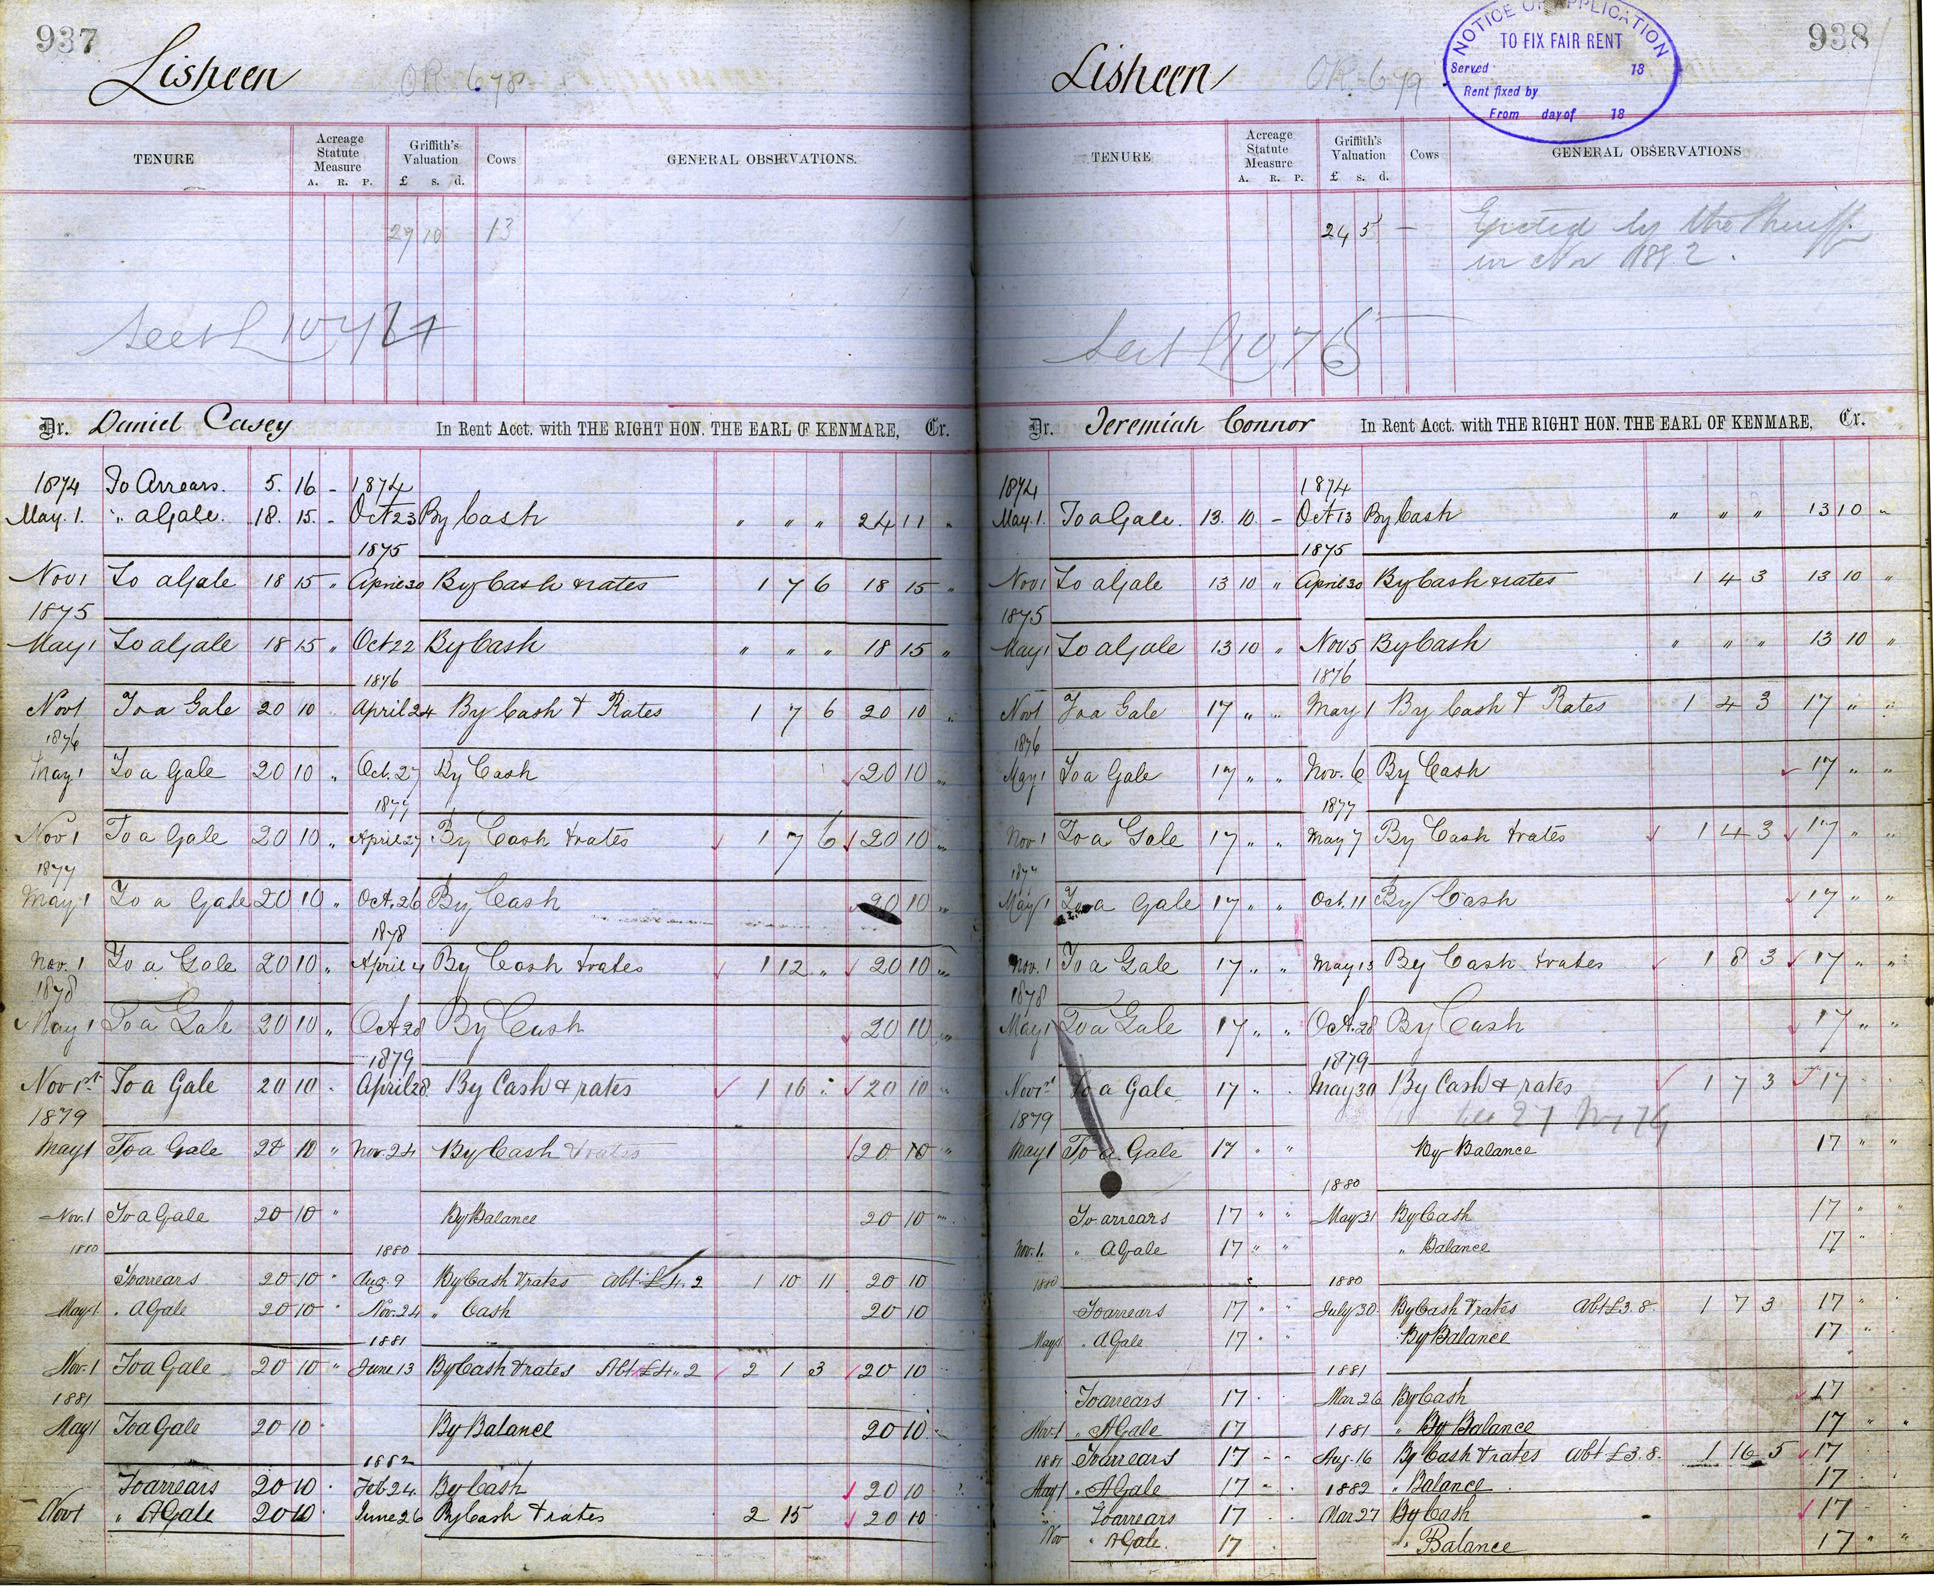 937
Lisheen
OR. 678
TENURE
Acreage Statute Measure
A. R. P.
Griffith's Valuation
£ s. d.
Cows
GENERAL OBSERVATIONS.
29 10
13
Daniel Casey
Dr. In Rent Acct. with THE RIGHT HON. THE EARL OF KENMARE, Cr.
1874 To Arrears. 5. 16 - 1874
May. 1. " a Gale. 18. 15. - Oct 23 By Cash " " " 24 11 "
1875
Nov 1 To a Gale 18 15 " April 30 By Cash & rates 1 7 6 18 15 "
1875
May 1 To a Gale 18 15 " Oct 22 By Cash " " " 18 15 "
1876
Nov 1 To a Gale 20 10 April 24 By Cash & Rates 1 7 6 20 10 "
1876
May 1 To a Gale 20 10 " Oct. 27 By Cash 20 10 "
1877
Nov 1 To a Gale 20 10 " April 27 By Cash & rates 1 7 6 20 10 "
1877
May 1 To a Gale 20 10 " Oct. 26 By Cash 20 10 "
1878
Nov. 1 To a Gale 20 10 " April 4 By Cash & rates 1 12 " 20 10 "
1878
May 1 To a Gale 20 10 " Oct 28 By Cash 20 10 "
1879
Nov 1st To a Gale 20 10 April 28 By Cash & rates 1 16 " 20 10 "
1879
May 1 To a Gale 20 10 " Nov 24 By Cash & rates 20 10 "
Nov. 1 To a Gale 20 10 " By Balance 20 10 "
1880 1880
To arrears 20 10 " Aug. 9 By Cash & rates Abt. £4.2 1 10 11 20 10
May 1 " A Gale 20 10 " Nov. 24 " Cash 20 10
1881
Nov. 1 To a Gale 20 10 " June 13 By Cash & rates Abt. £4.2 2 1 3 20 10
1881
May 1 To a Gale 20 10 By Balance 20 10
1882
To arrears 20 10 Feb 24 By Cash 20 10
Nov 1 " A Gale 20 10 June 26 By Cash & rates 2 15 20 10
938
Lisheen
OR. 679
NOTICE OF APPLICATION
TO FIX FAIR RENT
Served 18
Rent fixed by
From day of 18
TENURE
Acreage Statute Measure
A. R. P.
Griffith's Valuation
£ s. d.
Cows
GENERAL OBSERVATIONS
24 5 —
Ejected by the Sheriff
in Nov 1882.
Dr. Jeremiah Connor In Rent Acct. with THE RIGHT HON. THE EARL OF KENMARE, Cr.
1874 1874
May. 1. To a Gale. 13. 10. - Oct 13 By Cash " " " 13 10 "
1875
Nov 1 To a Gale 13 10 " April 30 By Cash & rates 1 4 3 13 10 "
1875
May 1 To a Gale 13 10 " Nov 5 By Cash " " " 13 10 "
1876
Nov 1 To a Gale 17 " " May 1 By Cash & Rates 1 4 3 17 " "
1876
May 1 To a Gale 17 " " Nov. 6 By Cash 17 " "
1877
Nov 1 To a Gale 17 " " May 7 By Cash & rates 1 4 3 17 " "
1877
May 1 To a Gale 17 " " Oct. 11 By Cash 17 " "
Nov. 1 To a Gale 17 " " May 13 By Cash & rates 1 8 3 17 " "
1878
May 1 To a Gale 17 " " Oct. 28 By Cash 17 " "
1879
Nov 1st To a Gale 17 " May 30 By Cash & rates 1 7 3 17
1879
May 1 To a Gale 17 " " By Balance 17 " "
1880
To arrears 17 " " May 31 By Cash 17 " "
Nov. 1. " A Gale 17 " " " Balance 17 "
1880 1880
To arrears 17 " " July 30 By Cash & rates Abt £3.8. 1 7 3 17 "
May 1 " A Gale 17 " " By Balance 17 "
1881
To arrears 17 Mar 26 By Cash 17
Nov. 1 " A Gale 17 1881 " By Balance 17 " "
1881 To arrears 17 - - Aug. 16 By Cash & rates Abt £3.8. 1 16 5 17
May 1 " A Gale 17 - 1882 " Balance 17
To arrears 17 Mar 27 By Cash 17
Nov " A Gale. 17 " Balance 17 " "